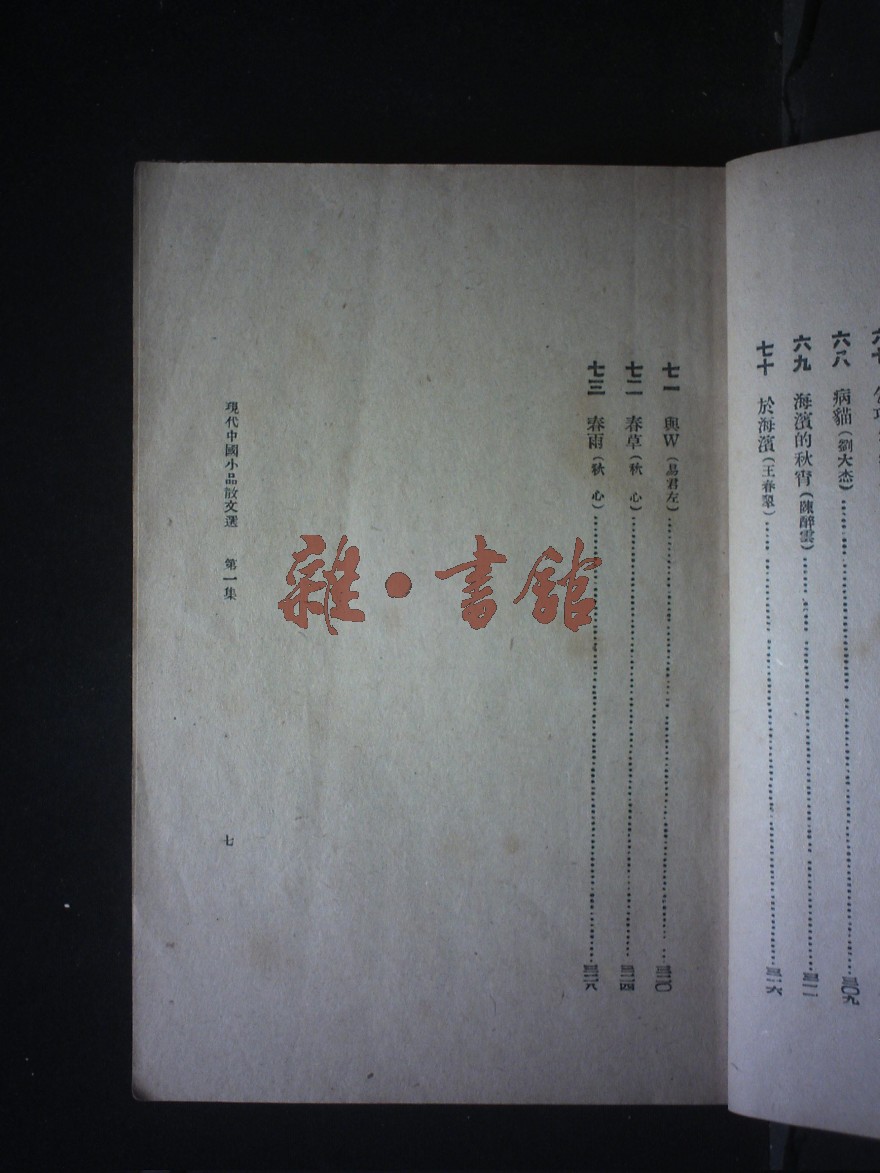 六八 病貓(劉大杰)……三〇九
六九 海濱的秋宵(陳醉雲)……三一一
七十 於海濱(王春翠)……三一六
七一 與W(易君左)……三二〇
七二 春草(秋心)……三二四
七三 春雨(秋心)……三二八
現代中國小品散文選 第一集
七
雜·書館